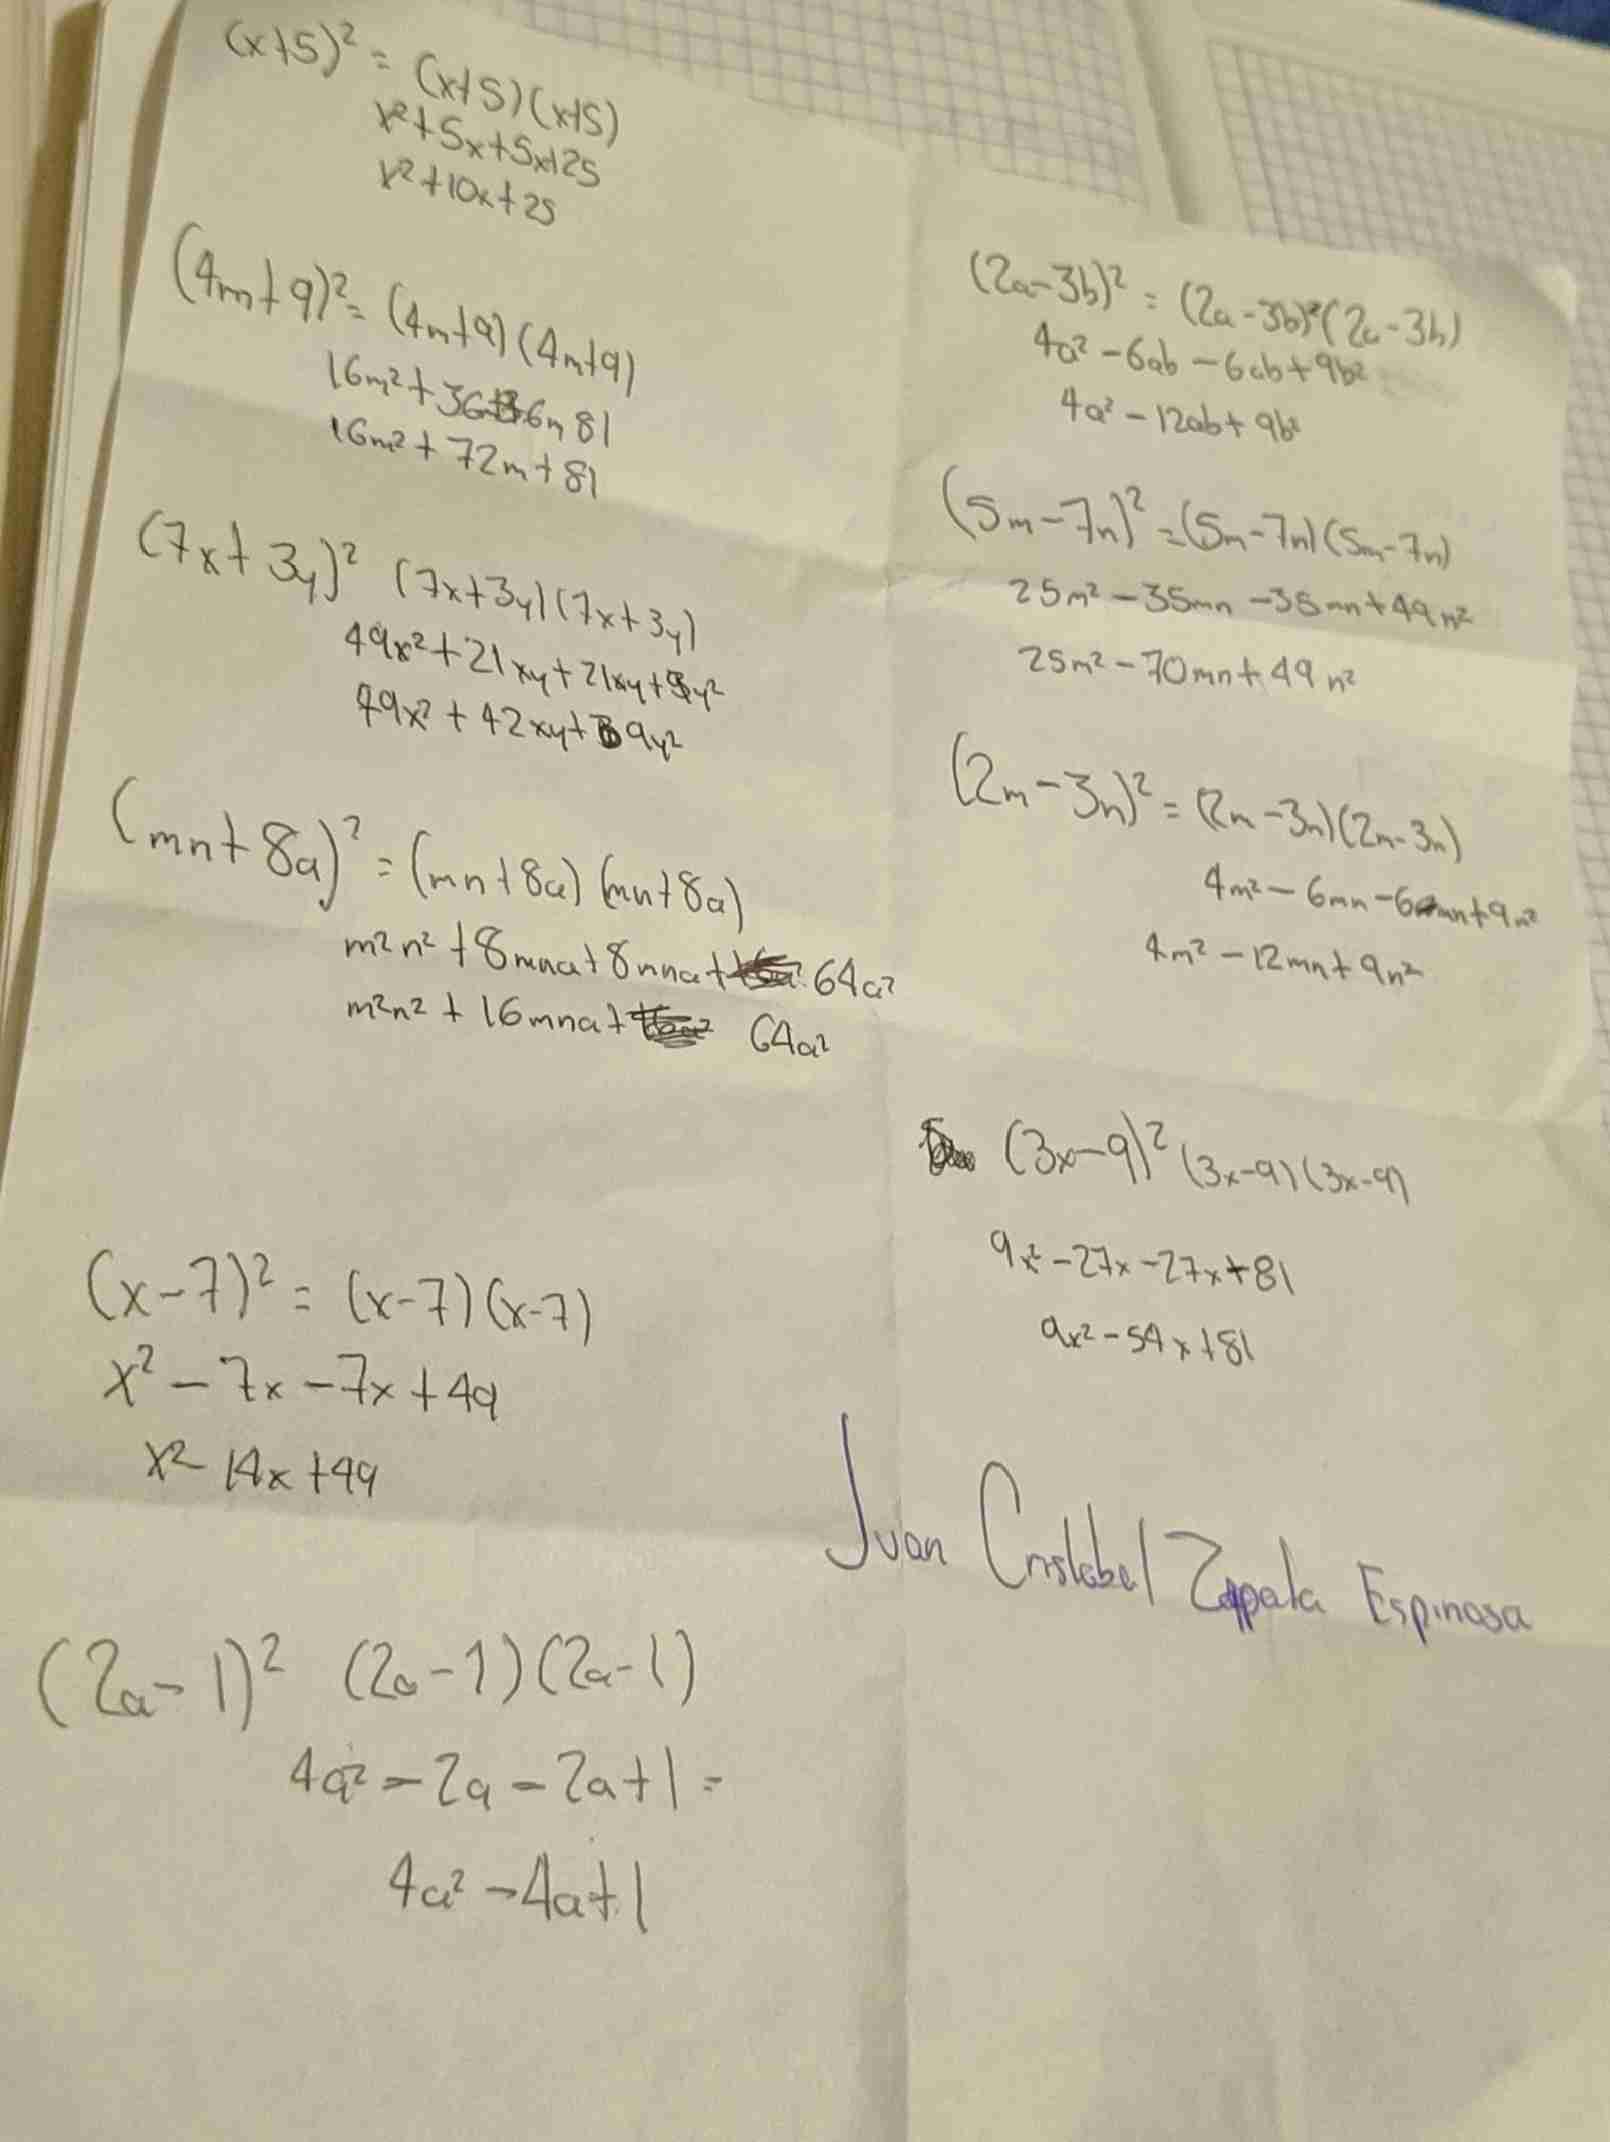 (x+5)² = (x+5)(x+5)
x²+5x+5x+25
x²+10x+25
(4m+9)² = (4m+9)(4m+9)
16m²+36+36m 81
16m²+72m+81
(7x+3y)² (7x+3y)(7x+3y)
49x²+21xy+21xy+9y²
49x²+42xy+9y²
(mn+8a)² = (mn+8a)(mn+8a)
m²n²+8mna+8mna+64a²
m²n²+16mna+64a²
(x-7)² = (x-7)(x-7)
x²-7x-7x+49
x²-14x+49
(2a-1)² (2a-1)(2a-1)
4a²-2a-2a+1=
4a²-4a+1
(2a-3b)² = (2a-3b)²(2a-3b)
4a²-6ab-6ab+9b²
4a²-12ab+9b²
(5m-7n)² = (5m-7n)(5m-7n)
25m²-35mn-35mn+49n²
25m²-70mn+49n²
(2m-3n)² = (2m-3n)(2m-3n)
4m²-6mn-6mn+9n²
4m²-12mn+9n²
(3x-9)² (3x-9)(3x-9)
9x²-27x-27x+81
9x²-54x+81
Juan Cristobal Zappata Espinosa